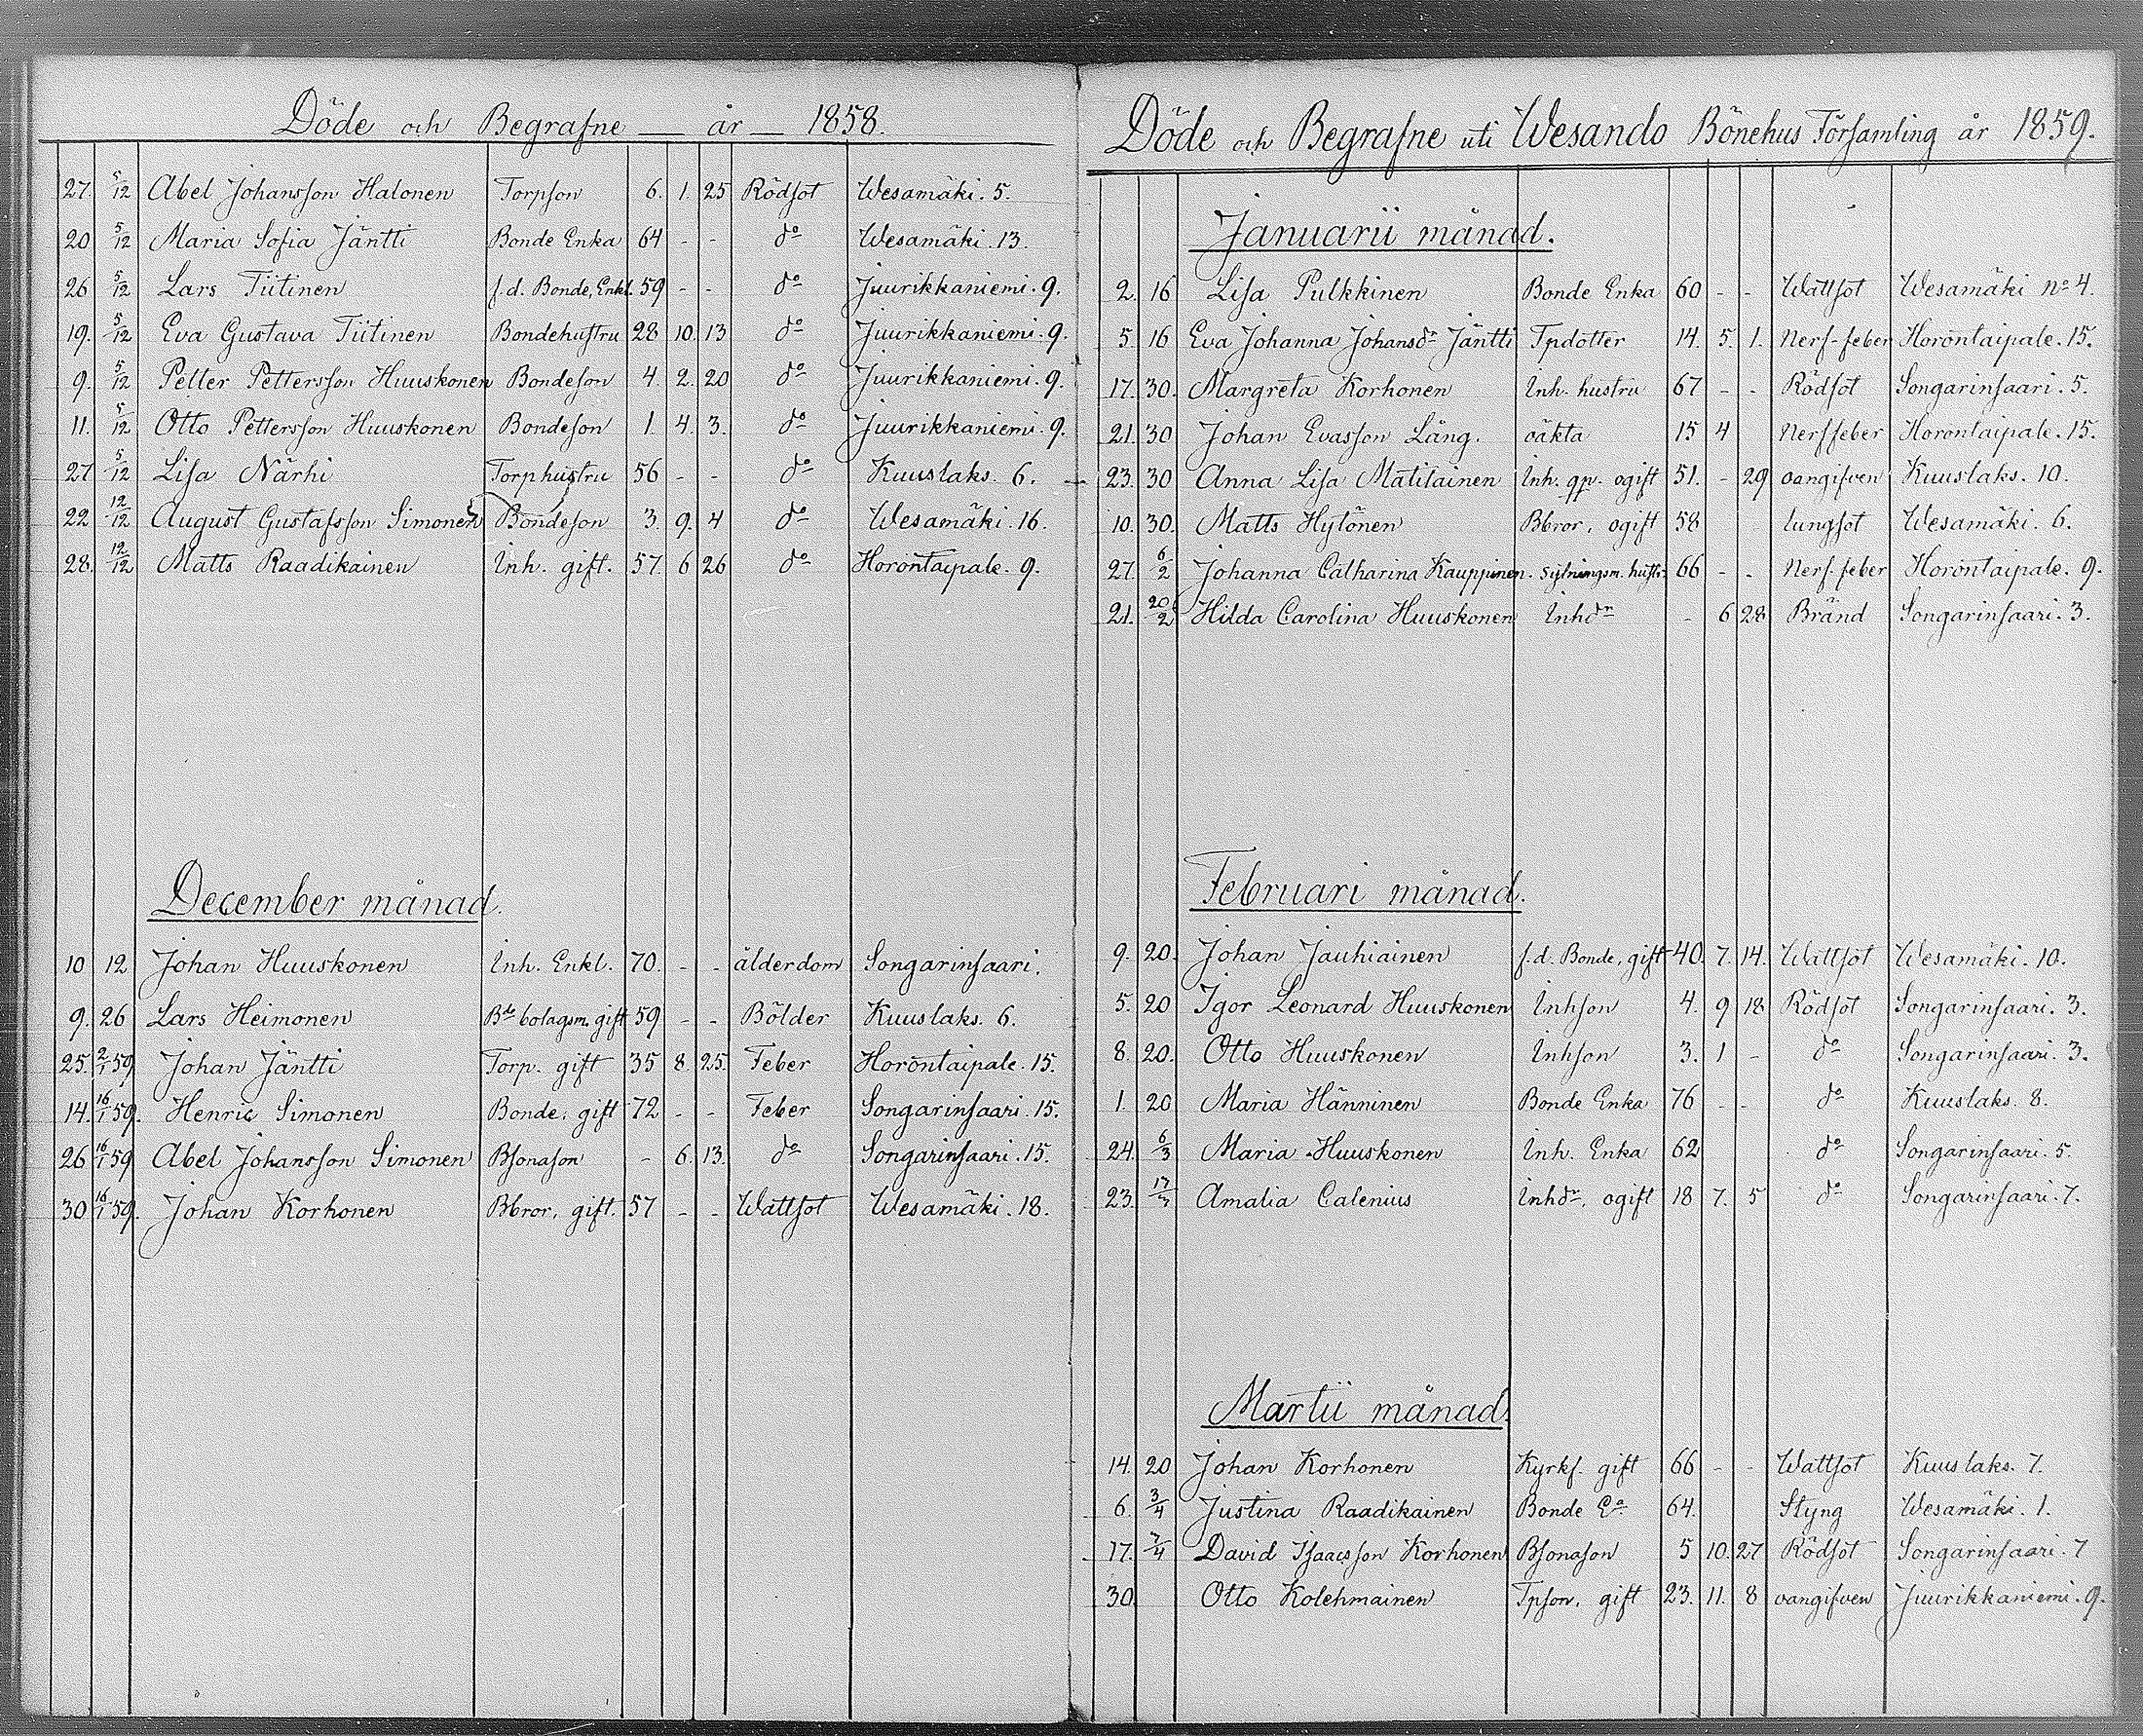 Döde och Begrafne — år — 1858.
27. 5/12 Abel Johansson Halonen Torpson 6. 1. 25 Rödsot Wesamäki. 5.
20 5/12 Maria Sofia Jäntti Bonde Enka 64 - - do Wesamäki. 13.
26 5/12 Lars Tiitinen f.d. Bonde, Enkl. 59 - - do Juurikkaniemi. 9.
19. 5/12 Eva Gustava Tiitinen Bondehustru 28 10. 13 do Juurikkaniemi. 9.
9. 5/12 Petter Pettersson Huuskonen Bondeson 4. 2. 20 do Juurikkaniemi. 9.
11. 5/12 Otto Pettersson Huuskonen Bondeson 1. 4. 3. do Juurikkaniemi. 9.
27 5/12 Lisa Närhi Torphustru 56 - - do Kuuslaks. 6.
22 12/12 August Gustafsson Simonen Bondeson 3. 9. 4 do Wesamäki. 16.
28. 12/12 Matts Raadikainen Inh. gift. 57. 6 26 do Horontaipale. 9.
December månad.
10 12 Johan Huuskonen Inh. Enkl. 70. - - ålderdom Songarinsaari.
9. 26 Lars Heimonen Bde bolagsm. gift 59 - - Bölder Kuuslaks. 6.
25. 2/1 59 Johan Jäntti Torp. gift 35 8. 25. Feber Horontaipale. 15.
14. 16/1 59. Henric Simonen Bonde, gift 72 - - Feber Songarinsaari. 15.
26 16/1 59 Abel Johansson Simonen Bsonason - 6. 13. do Songarinsaari. 15.
30 16/1 59. Johan Korhonen Bbror, gift. 57 - - Wattsot Wesamäki. 18.
Döde och Begrafne uti Wesando Bönehus Församling år 1859.
Januarii månad.
2. 16 Lisa Pulkkinen Bonde Enka 60 - - Wattsot Wesamäki no 4.
5. 16 Eva Johanna Johansdr Jäntti Tpdotter 14. 5. 1. Nerf-feber Horontaipale. 15.
17. 30. Margreta Korhonen Inh. hustru 67 - - Rödsot Songarinsaari. 5.
21. 30 Johan Evasson Lång. oäkta 15 4 Nerffeber Horontaipale. 15.
23. 30 Anna Lisa Matilainen Inh. qp. ogift 51. - 29 oangifven Kuuslaks. 10.
10. 30. Matts Hytönen Bbror, ogift 58 lungsot Wesamäki. 6.
27. 6/2 Johanna Catharina Kauppinen. Sytningsm. hustr. 66 - - Nerf-feber Horontaipale. 9.
21. 20/2 Hilda Carolina Huuskonen Inhdr - 6 28 Bränd Songarinsaari. 3.
Februari månad.
9. 20. Johan Jauhiainen f.d. Bonde, gift 40. 7. 14. Wattsot Wesamäki. 10.
5. 20 Igor Leonard Huuskonen Inhson 4. 9 18 Rödsot Songarinsaari. 3.
8. 20. Otto Huuskonen Inhson 3. 1 - do Songarinsaari. 3.
1. 20 Maria Hänninen Bonde Enka 76 - - do Kuuslaks. 8.
24. 6/3 Maria Huuskonen Inh. Enka 62 do Songarinsaari. 5.
23. 17/3 Amalia Calenius Inhdr, ogift 18 7. 5 do Songarinsaari. 7.
Martii månad.
14. 20 Johan Korhonen Kyrkf. gift 66 - - Wattsot Kuuslaks. 7.
6. 3/4 Justina Raadikainen Bonde Ea 64. Styng Wesamäki. 1.
17. 7/4 David Isacsson Korhonen Bsonason 5 10. 27 Rödsot Songarinsaari. 7
30. Otto Kolehmainen Tpson, gift 23. 11. 8 oangifven Juurikkaniemi. 9.